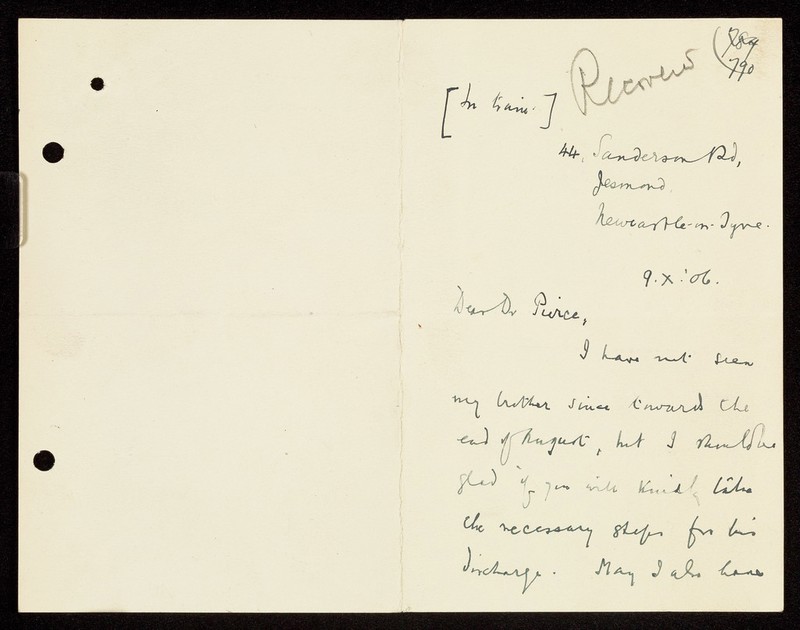 Recovered (789
790
[In train.]
44, Sanderson Rd,
Jesmond.
Newcastle-on-Tyne.
9.X.'06.
Dear Dr Pierce,
I have not seen
my brother since towards the
end of August, but I should be
glad if you will kindly take
the necessary steps for his
discharge. May I also have